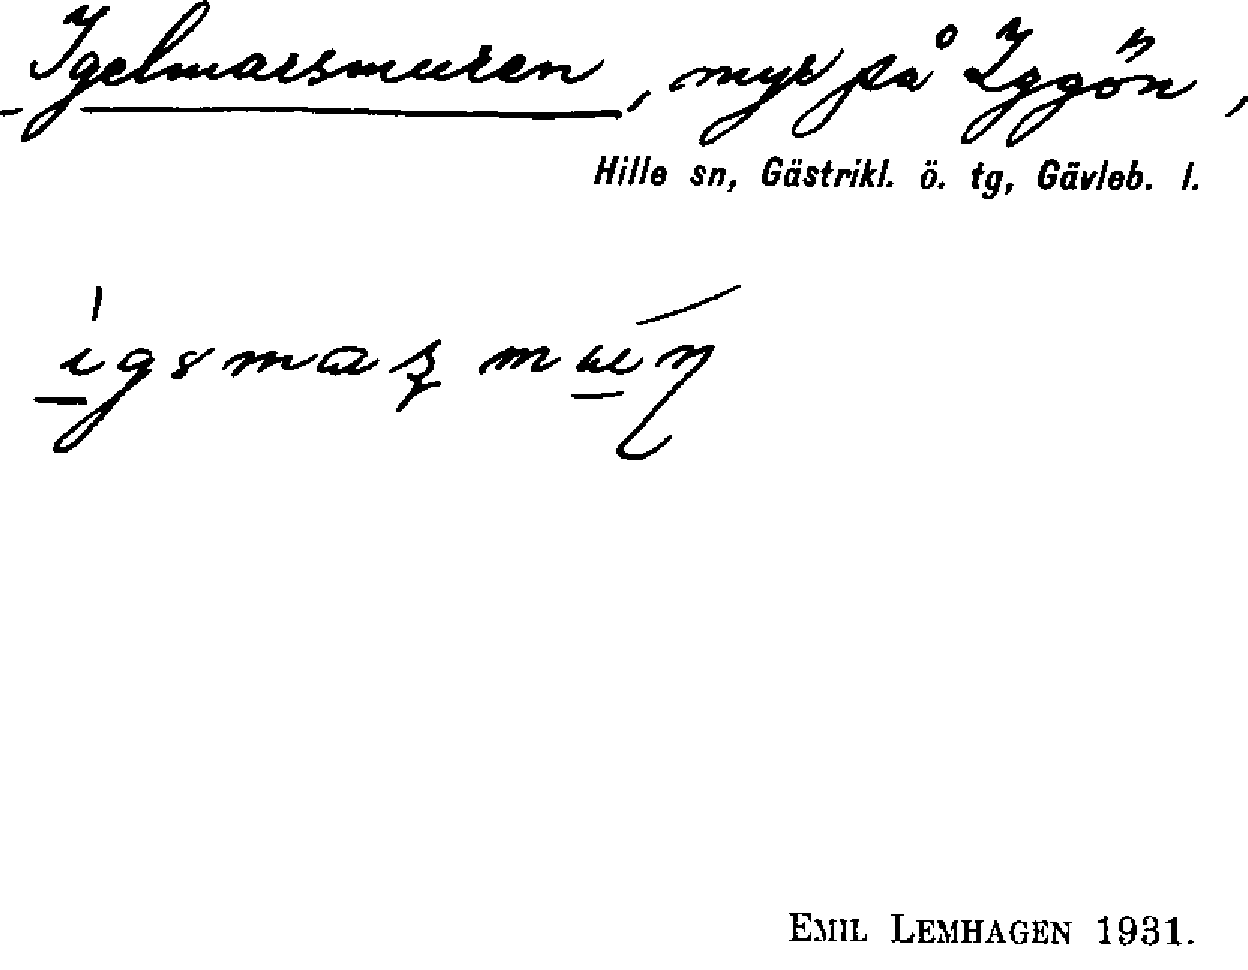 Igelmarsmuren, myr på Iggön,
Hille sn, Gästrikl. ö. tg, Gävleb. l.
EMIL LEMHAGEN 1931.